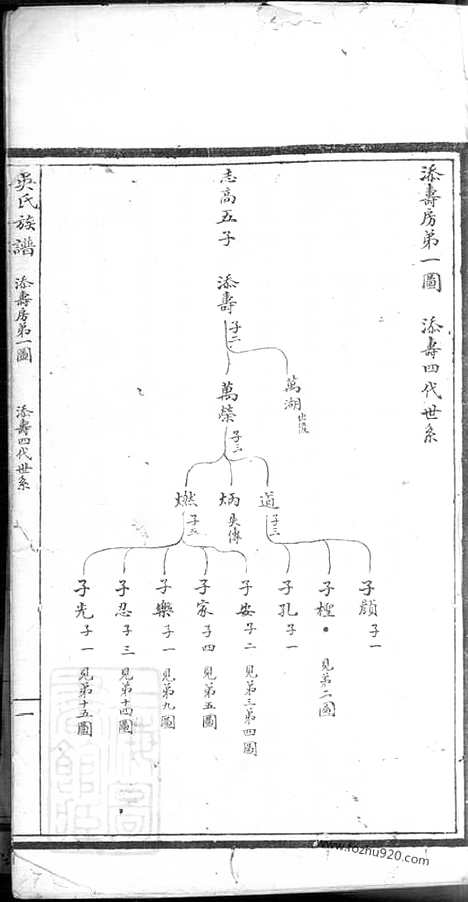 添壽房第一圖 添壽四代世系
志高五子 添壽 子二
萬湖
萬榮 子三
道 子三
炳 失傳
燃 子五
子顔 子一
子桱 見第二圖
子孔 子一
子安 子二 見第三第四圖
子家 子四 見第五圖
子樂 子一 見第九圖
子忍 子三 見第十四圖
子光 子一 見第十五圖
吳氏族譜 添壽房第一圖 添壽四代世系 一
www.fozhu920.com